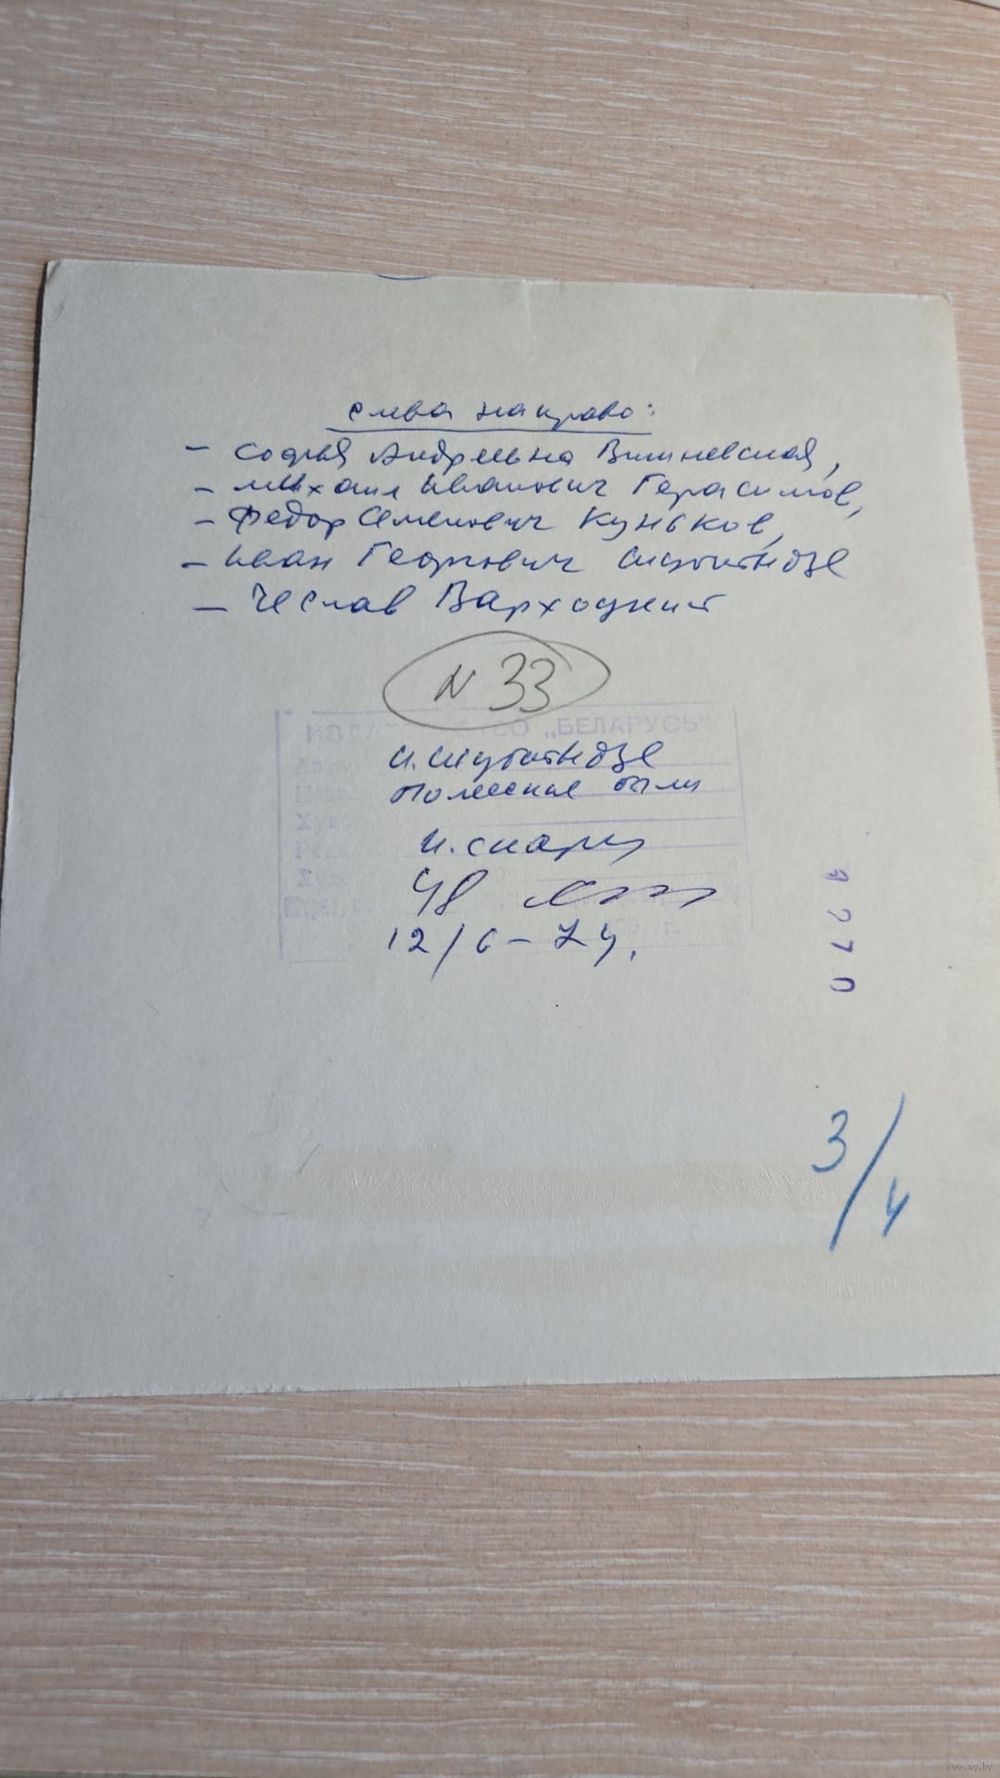 слева направо:
- Софья Андреевна Вишневская,
- Михаил Иванович Герасимов,
- Федор Семенович Куньков,
- Иван Георгович Шубитидзе
- Чеслав Вархоцкий
N 33
"БЕЛАРУСЬ"
И. Шубитидзе
Полесские были
48
12/6-74.
3/4
www.ay.by